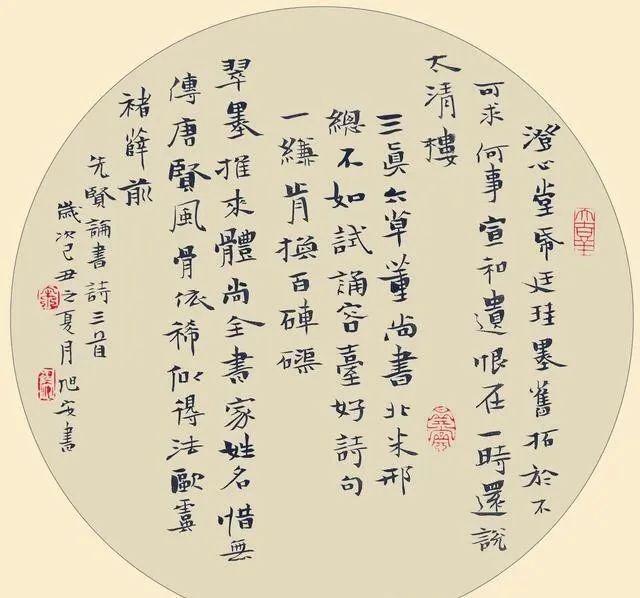 澄心堂帋廷珪墨舊拓於不
可求何事宣和遺恨在一時還說
太清樓
三真六草董尚書北米邢
總不如試誦容臺好詩句
一縑肯換百硨磲
翠墨推來體尚全書家姓名惜無
傳唐賢風骨依稀佀得法歐虞
褚薛前
先賢論書詩三首
歲次己丑之夏月旭安書